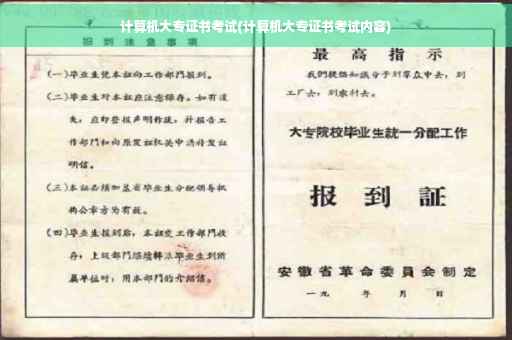 计算机大专证书考试(计算机大专证书考试内容)
报到注意事项
(一)毕业生凭本证向工作部门报到。
(二)毕业生对本证应注意保存。如有遗
失，应即登报声明作废，并报告工
作部门和向原发证机关申请补发证
明信。
(三)本证必须加盖省毕业生分配领导机
构公章方为有效。
(四)毕业生报到后，本证交工作部门收
存；上级部门
毕业生到所
属单位时，用本部门的介绍信。
最高指示
我们提倡知识分子到群众中去，到
工厂去，到农村去。
大专院校毕业生统一分配工作
报到証
安徽省革命委員会制定
一九 年 月 日